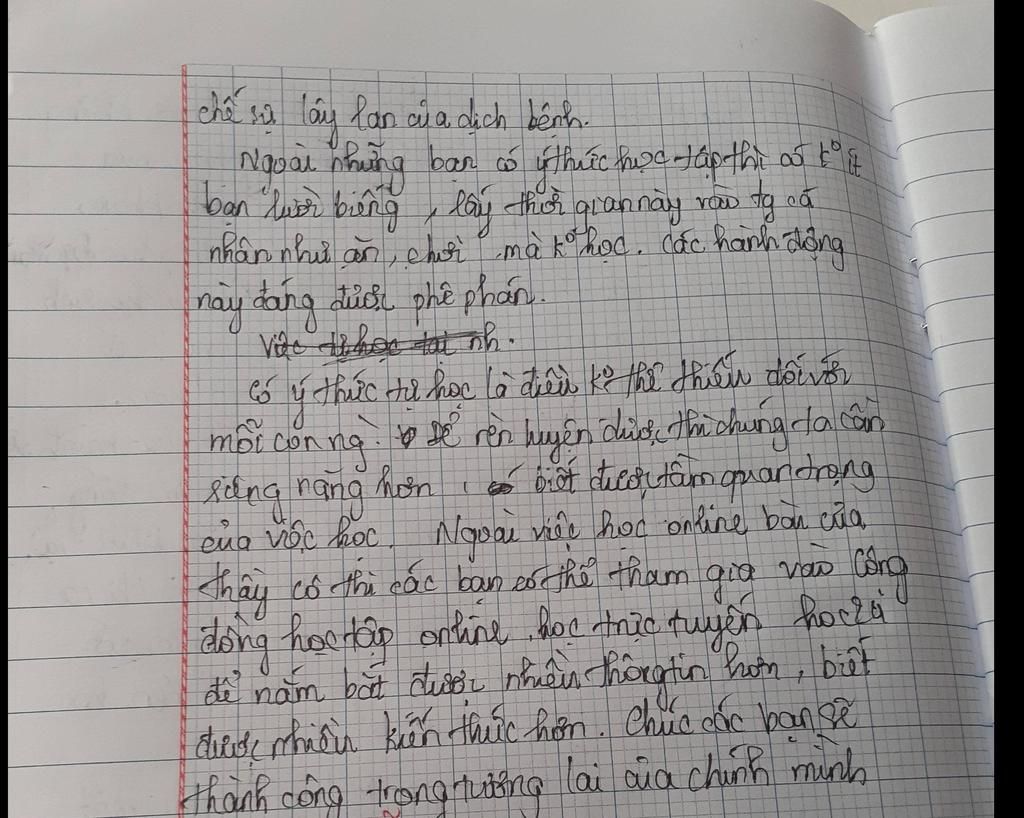 chế sự lây lan của dịch bệnh.
Ngoài những bạn có ý thức học tập thì có k⁰ ít
bạn lười biếng, lấy thời gian này vào tg cá
nhân như ăn, chơi mà k⁰ học. Các hành động
này đáng được phê phán.
Việc tự học tại nh.
Có ý thức tự học là điều k⁰ thể thiếu đối với
mỗi con ng`. Để rèn luyện được thì chúng ta cần
năng hơn, biết được tầm quan trọng
của việc học. Ngoài việc học online bài của
thầy cô thì các bạn có thể tham gia vào công
đồng học tập online, học trực tuyến hoc24
để nắm bắt được nhiều thông tin hơn, biết
được nhiều kiến thức hơn. Chúc các bạn sẽ
thành công trong tương lai của chính mình